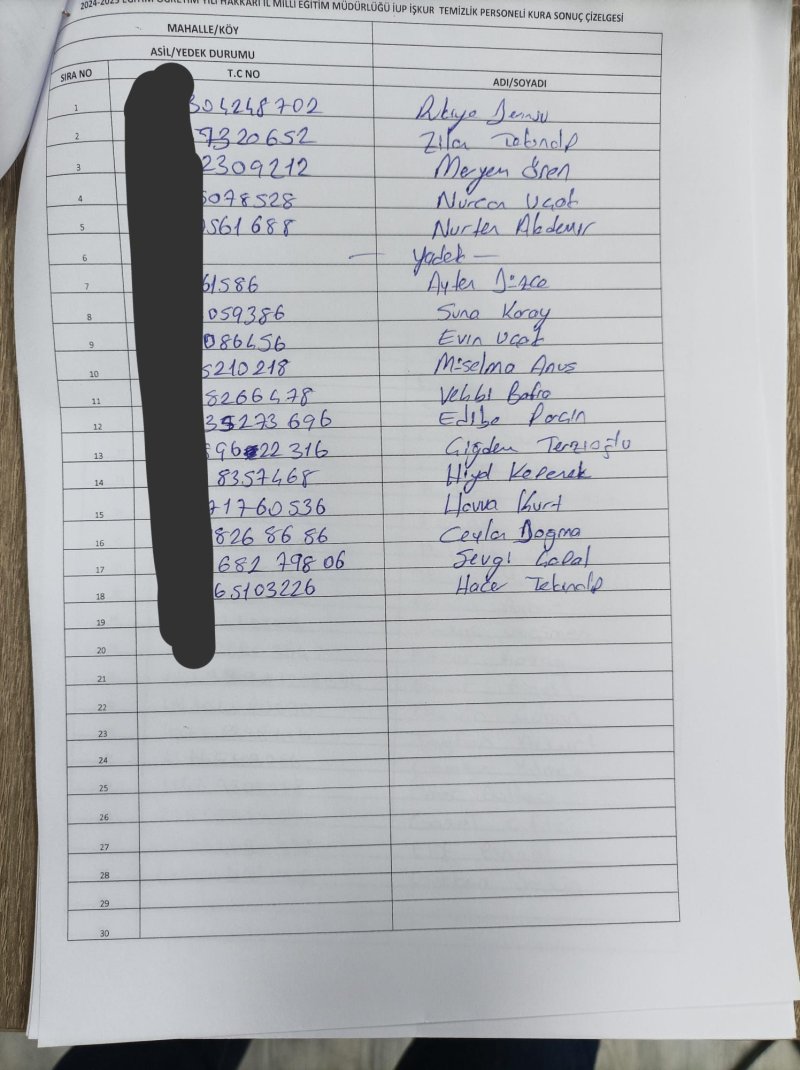 2024-2025 EĞİTİM ÖĞRETİM YILI HAKKARİ İL MİLLİ EĞİTİM MÜDÜRLÜĞÜ İUP İŞKUR TEMİZLİK PERSONELİ KURA SONUÇ ÇİZELGESİ
MAHALLE/KÖY
ASİL/YEDEK DURUMU
SIRA NO T.C NO ADI/SOYADI
1 304248702
2 7320652 Zilan Tekinalp
3 2309212 Meryem Ören
4 5078528 Nurcan Uçat
5 0561688 Nurten Akdemir
6 — Yedek —
7 61586 Ayten Düzce
8 059386 Suna Koray
9 086456 Evin Uçat
10 5210218 Müselma
11 8266478 Vehbi
12 35273696 Edibe
13 22 316 Çiğdem Terzioğlu
14 8357468
15 71760536 Havva Kurt
16 826 86 86 Ceylan Doğma
17 682 798 06 Sevgi
18 65103226 Hacer Tekinalp
19
20
21
22
23
24
25
26
27
28
29
30